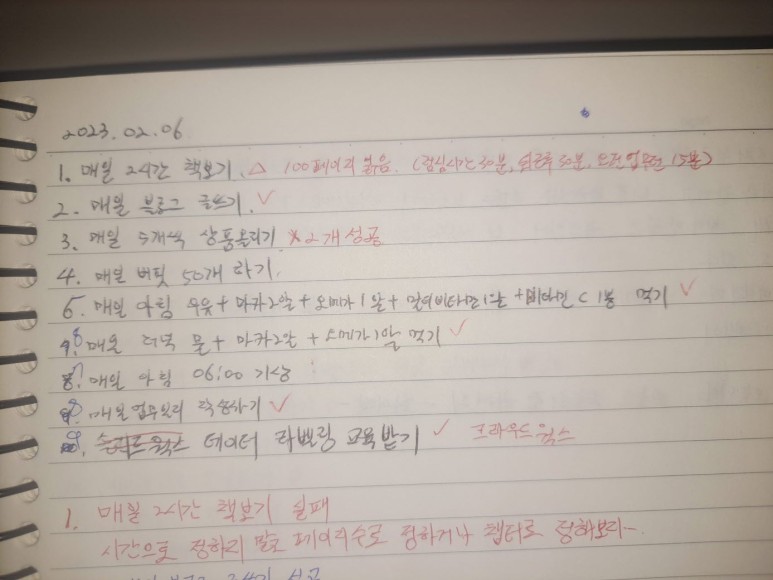 2023.02.06
1. 매일 2시간 책보기. △ 100페이지 읽음. (점심시간 30분, 퇴근후 30분, 오전업무전 15분)
2. 매일 블로그 글쓰기. ✓
3. 매일 5개씩 상품올리기 × 2개 성공
4. 매일 버핏 50개 하기.
5. 매일 아침 우유 + 마카2알 + 오메가1알 + 멀티비타민1알 + 비타민C 1봉 먹기 ✓
6. 매일 저녁 물 + 마카2알 + 오메가1알 먹기 ✓
7. 매일 아침 06:00 기상
8. 매일 업무일지 작성하기 ✓
9. 데이터 라벨링 교육받기 ✓ 크라우드웍스
1. 매일 2시간 책보기 실패
시간으로 정하지 말고 페이지수로 정하거나 챕터로 정해보자-